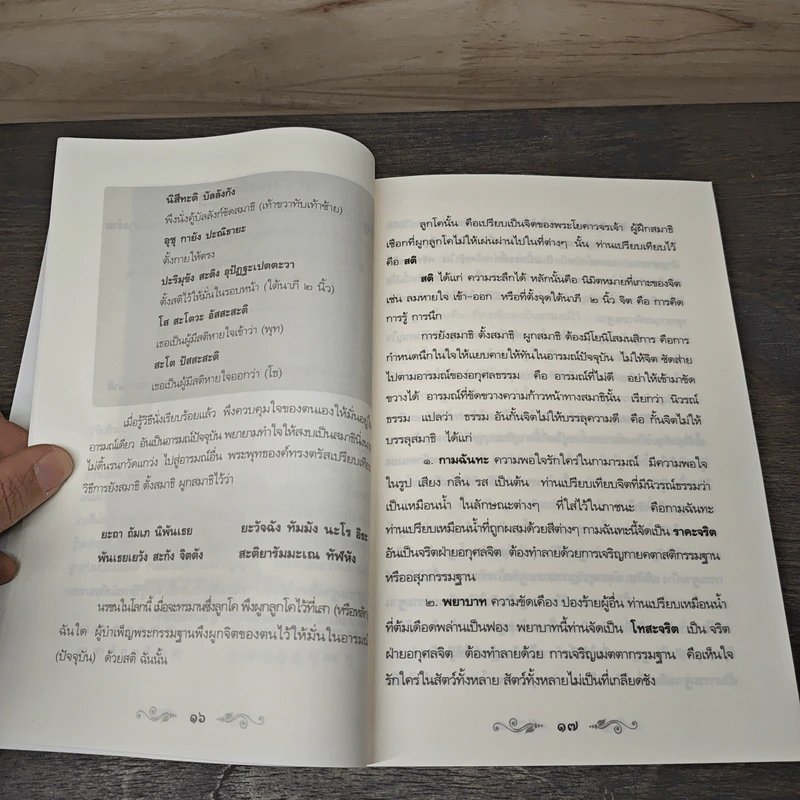 นิสีทะติ บัลลังกัง
พึงนั่งคู้บัลลังก์ขัดสมาธิ (เท้าขวาทับเท้าซ้าย)
อุชุ กายัง ปะณิธายะ
ตั้งกายให้ตรง
ปะริมุขัง สะติง อุปัฏฐะเปตตะวา
ตั้งสติไว้ให้มั่นในรอบหน้า (ใต้นาภี ๒ นิ้ว)
โส สะโตวะ อัสสะสะติ
เธอเป็นผู้มีสติหายใจเข้าว่า (พุท)
สะโต ปัสสะสะติ
เธอเป็นผู้มีสติหายใจออกว่า (โธ)
เมื่อรู้วิธีนั่งเรียบร้อยแล้ว พึงควบคุมใจของตนเองให้มั่นอยู่ใน
อารมณ์เดียว อันเป็นอารมณ์ปัจจุบัน พยายามทำใจให้สงบเป็นสมาธินั่ง
ไม่ดิ้นรนกวัดแกว่ง ไปสู่อารมณ์อื่น พระพุทธองค์ทรงตรัสเปรียบเทียบ
วิธีการยังสมาธิ ตั้งสมาธิ ผูกสมาธิไว้ว่า
ยะถา ถัมเภ นิพันเธยย ยะวัจฉัง ทัมมัง นะโร อิธะ
พันเธยเยวัง สะกัง จิตตัง สะติยารัมมะเณ ทัฬหัง
นรชนในโลกนี้ เมื่อจะทรมานซึ่งลูกโค พึงผูกลูกโคไว้ที่เสา (หรือหลัก)
ฉันใด ผู้บำเพ็ญพระกรรมฐานพึงผูกจิตของตนไว้ให้มั่นในอารมณ์
(ปัจจุบัน) ด้วยสติ ฉันนั้น
๑๖
ลูกโคนั้น คือเปรียบเป็นจิตของพระโยคาวจรเจ้า ผู้ฝึกสมาธิ
เชือกที่ผูกลูกโคไม่ให้เผ่นผ่านไปในที่ต่างๆ นั้น ท่านเปรียบเทียบไว้
คือ สติ
สติ ได้แก่ ความระลึกได้ หลักนั้นคือ นิมิตหมายที่เกาะของจิต
เช่น ลมหายใจ เข้า-ออก หรือที่ตั้งจุดใต้นาภี ๒ นิ้ว จิต คือ การคิด
การรู้ การนึก
การยังสมาธิ ตั้งสมาธิ ผูกสมาธิ ต้องมีโยนิโสมนสิการ คือการ
กำหนดนึกในใจให้แยบคายให้ทันในอารมณ์ปัจจุบัน ไม่ให้จิต ซัดส่าย
ไปตามอารมณ์ของอกุศลธรรม คือ อารมณ์ที่ไม่ดี อย่าให้เข้ามาขัด
ขวางได้ อารมณ์ที่ขัดขวางความก้าวหน้าทางสมาธินั้น เรียกว่า นิวรณ์
ธรรม แปลว่า ธรรม อันกั้นจิตไม่ให้บรรลุความดี คือ กั้นจิตไม่ให้
บรรลุสมาธิ ได้แก่
๑. กามฉันทะ ความพอใจรักใคร่ในกามารมณ์ มีความพอใจ
ในรูป เสียง กลิ่น รส เป็นต้น ท่านเปรียบเทียบจิตที่มีนิวรณ์ธรรมว่า
เป็นเหมือนน้ำ ในลักษณะต่างๆ ที่ใส่ไว้ในภาชนะ คือกามฉันทะ
ท่านเปรียบเหมือนน้ำที่ถูกผสมด้วยสีต่างๆ กามฉันทะนี้จัดเป็น ราคะจริต
อันเป็นจริตฝ่ายอกุศลจิต ต้องทำลายด้วยการเจริญกายคตาสติกรรมฐาน
หรืออสุภกรรมฐาน
๒. พยาบาท ความขัดเคือง ปองร้ายผู้อื่น ท่านเปรียบเหมือนน้ำ
ที่ต้มเดือดพล่านเป็นฟอง พยาบาทนี้ท่านจัดเป็น โทสะจริต เป็น จริต
ฝ่ายอกุศลจิต ต้องทำลายด้วย การเจริญเมตตากรรมฐาน คือเห็นใจ
รักใคร่ในสัตว์ทั้งหลาย สัตว์ทั้งหลายไม่เป็นที่เกลียดชัง
๑๗